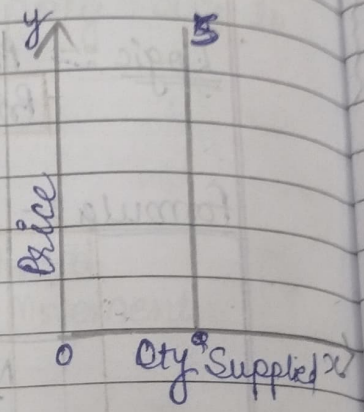 y
S
Price
0
Qty Supplied x